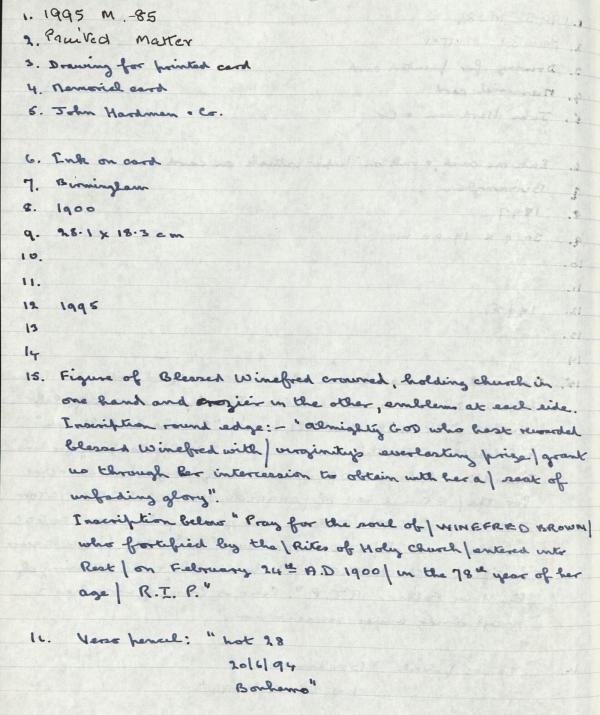 1. 1995 M .-85
2. Printed Matter
3. Drawing for printed card
4. Memorial card
5. John Hardman & Co.
6. Ink on card
7. Birmingham
8. 1900
9. 28.1 x 18.3 cm
10.
11.
12 1995
13
14
15. Figure of Blessed Winefred crowned, holding church in
one hand and crozier in the other, emblems at each side.
Inscription round edge:- "almighty GOD who hast rewarded
blessed Winefred with/ virginity's everlasting prize/ grant
us through her intercession to obtain with her a/ seat of
unfading glory".
Inscription below "Pray for the soul of/ WINEFRED BROWN/
who fortified by the/ Rites of Holy Church/ entered into
Rest/ on February 24th A.D 1900/ in the 78th year of her
age/ R.I.P."
16. Verso pencil: "Lot 28
20/6/94
Bonhams"